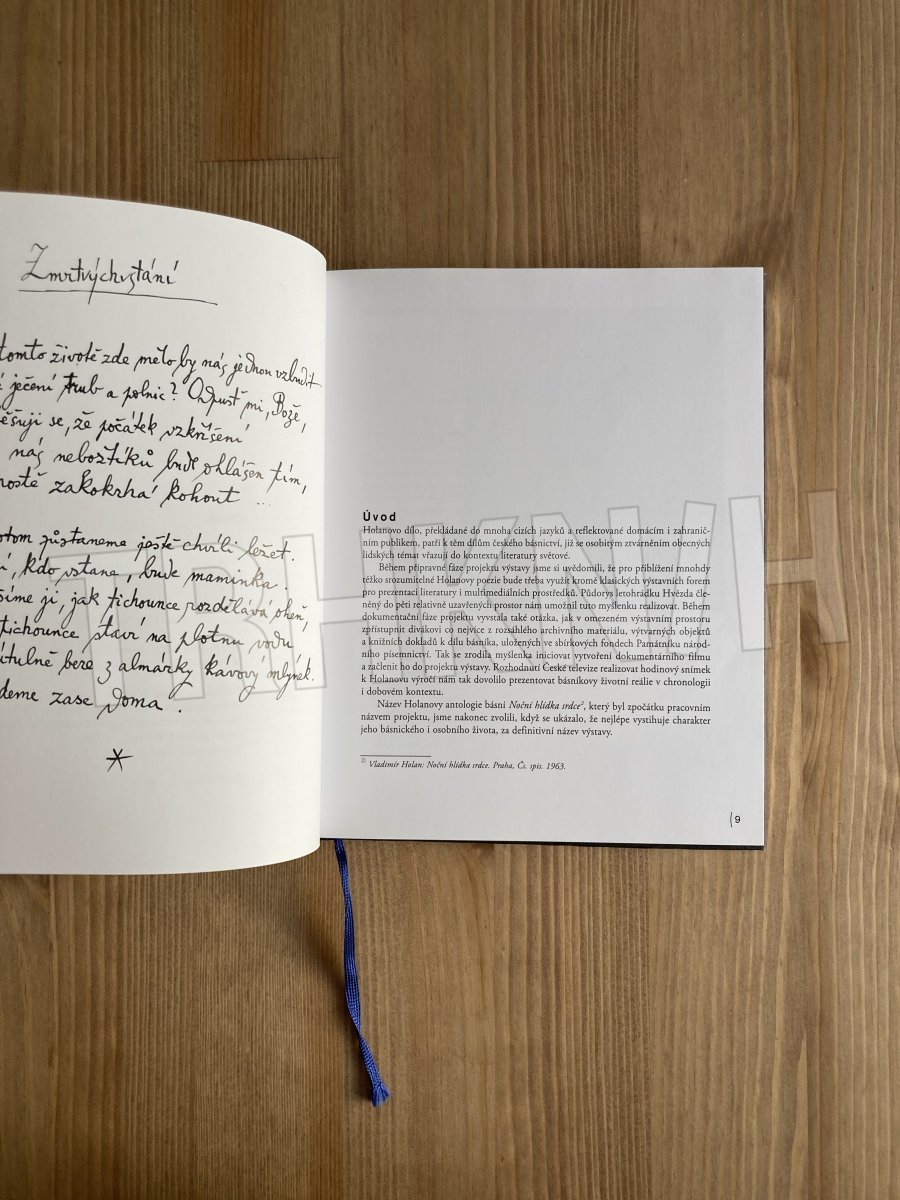 Zmrtvýchvstání
tomto životě zde mělo by nás jednou vzbudit
ječení trub a polnic? Odpusť mi, Bože,
ěšuji se, že počátek vzkříšení
nás nebožtíků bude ohlášen tím,
rostě zakokrhá kohout ...
otom zůstaneme ještě chvíli ležet.
í, kdo vstane, bude maminka.
šíme ji, jak tichounce rozdělává oheň,
tichounce staví na plotnu vodu
útulně bere z almárky kávový mlýnek.
deme zase doma.
Úvod
Holanovo dílo, překládané do mnoha cizích jazyků a reflektované domácím i zahranič-
ním publikem, patří k těm dílům českého básnictví, již se osobitým ztvárněním obecných
lidských témat vřazují do kontextu literatury světové.
Během přípravné fáze projektu výstavy jsme si uvědomili, že pro přiblížení mnohdy
těžko srozumitelné Holanovy poezie bude třeba využít kromě klasických výstavních forem
pro prezentaci literatury i multimediálních prostředků. Půdorys letohrádku Hvězda čle-
něný do pěti relativně uzavřených prostor nám umožnil tuto myšlenku realizovat. Během
dokumentační fáze projektu vyvstala také otázka, jak v omezeném výstavním prostoru
zpřístupnit divákovi co nejvíce z rozsáhlého archivního materiálu, výtvarných objektů
a knižních dokladů k dílu básníka, uložených ve sbírkových fondech Památníku národ-
ního písemnictví. Tak se zrodila myšlenka iniciovat vytvoření dokumentárního filmu
a začlenit ho do projektu výstavy. Rozhodnutí České televize realizovat hodinový snímek
k Holanovu výročí nám tak dovolilo prezentovat básníkovy životní reálie v chronologii
i dobovém kontextu.
Název Holanovy antologie básní Noční hlídka srdce², který byl zpočátku pracovním
názvem projektu, jsme nakonec zvolili, když se ukázalo, že nejlépe vystihuje charakter
jeho básnického i osobního života, za definitivní název výstavy.
²⁾ Vladimír Holan: Noční hlídka srdce. Praha, Čs. spis. 1963.
(9
TRHKNIH